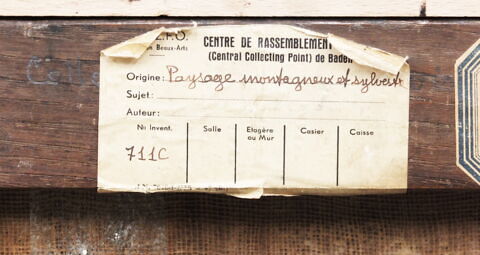 Z.F.O.
Beaux-Arts
CENTRE DE RASSEMBLEMENT
(Central Collecting Point) de Baden
Origine: Paysage montagneux et sylvestre
Sujet:
Auteur:
No Invent. Salle Etagère ou Mur Casier Caisse
711C